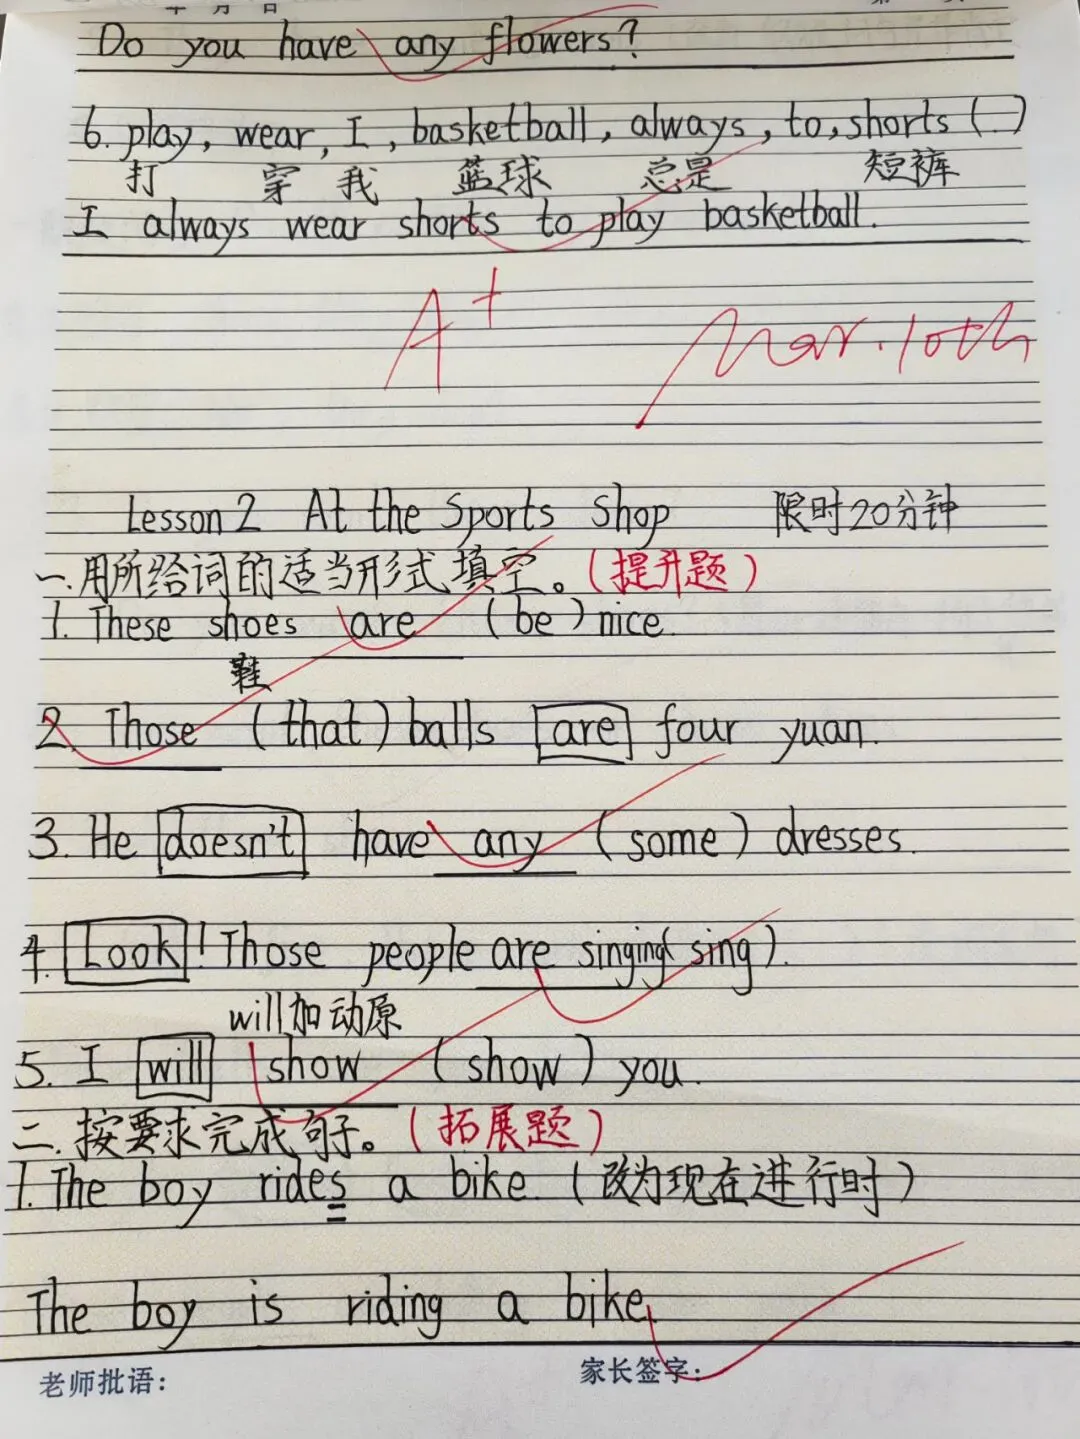 年 月 日 第
Do you have any flowers?
6. play, wear, I, basketball, always, to, shorts (.)
打 穿 我 篮球 总是 短裤
I always wear shorts to play basketball.
A+ Mar. 10th
Lesson 2 At the Sports Shop 限时20分钟
一.用所给词的适当形式填空。(提升题)
1. These shoes are (be) nice.
鞋
2. Those (that) balls are four yuan.
3. He doesn't have any (some) dresses.
4. Look! Those people are singing(sing).
will加动原
5. I will show (show) you.
二.按要求完成句子。(拓展题)
1. The boy rides a bike. (改为现在进行时)
The boy is riding a bike.
老师批语: 家长签字: